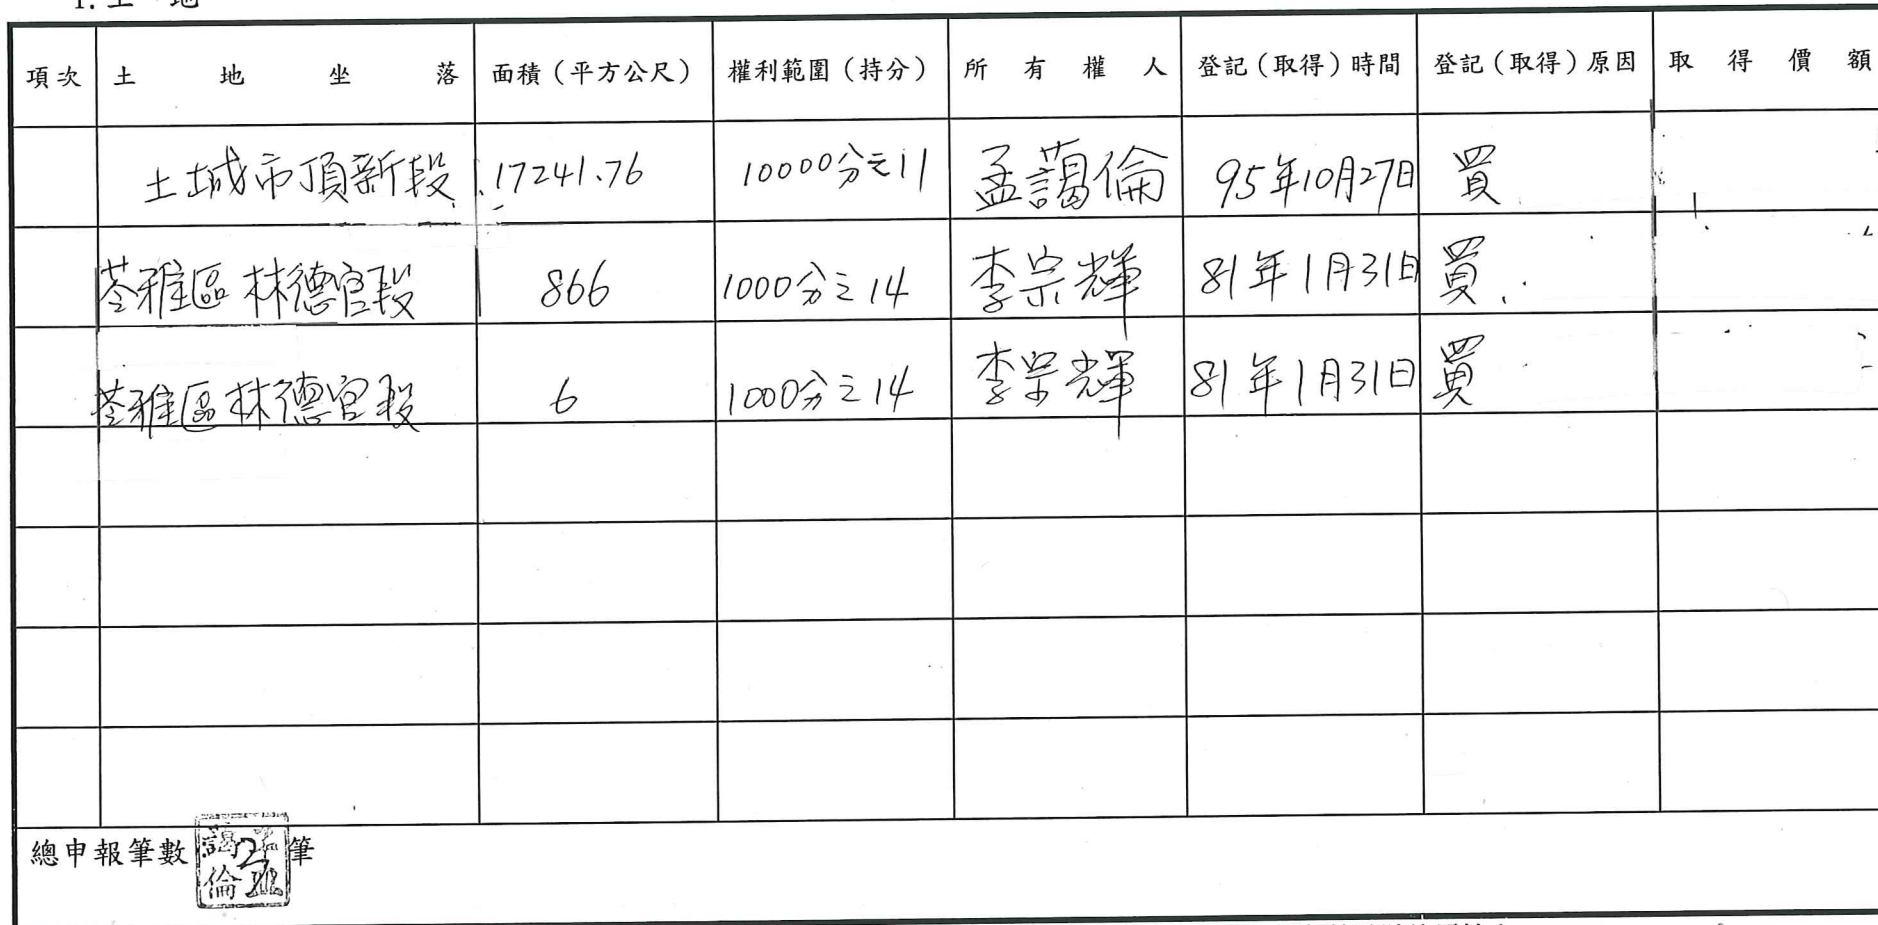 1. 土 地
項次 土地坐落 面積（平方公尺） 權利範圍（持分） 所有權人 登記（取得）時間 登記（取得）原因 取得價額
土城市頂新段 17241.76 10000分之11 孟藹倫 95年10月27日 買
苓雅區林德官段 866 1000分之14 李宗輝 81年1月31日 買
苓雅區林德官段 6 1000分之14 李宗輝 81年1月31日 買
總申報筆數 筆